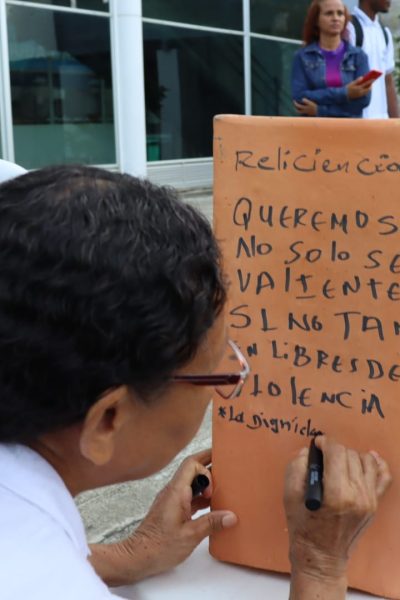 Reliciencia
QUEREMOS
No Solo SE
VALIENTE
SINO TAM
EN LiBRES DE
VIOLENCiA
*La Dignida